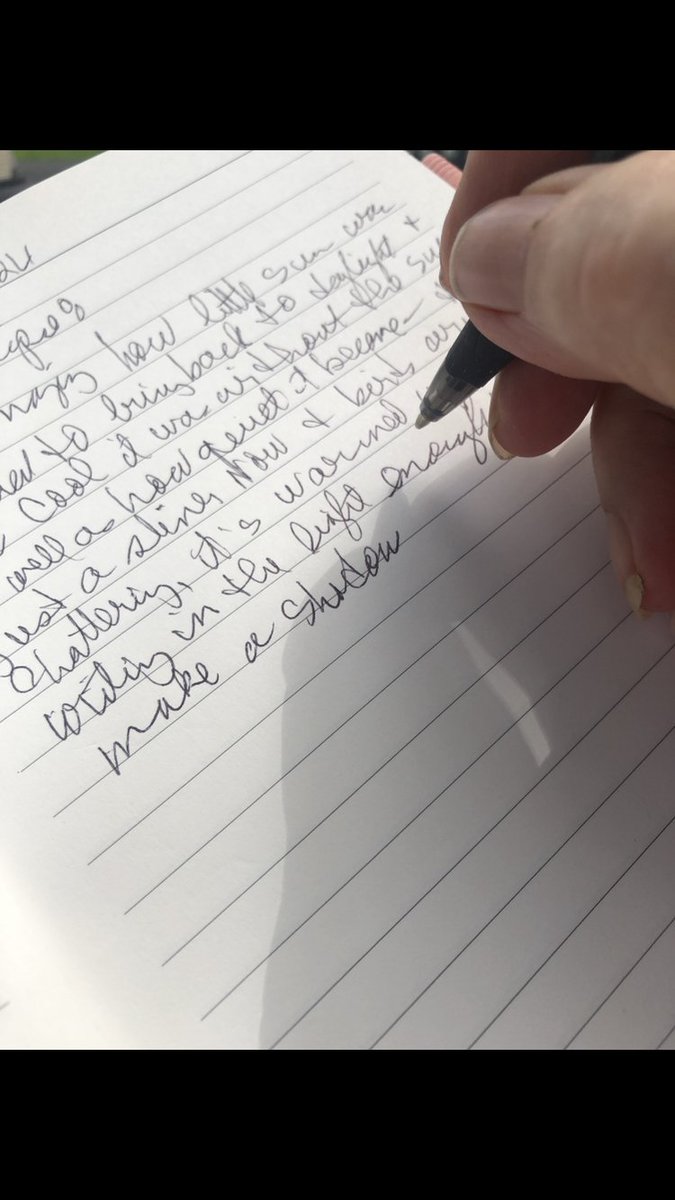 24
how little sun was
to bring back to daylight &
cool it was without the
well as how quiet it became
Just a sliver Now & birds
Chattering, it's warmed
writing in the light enough
make a shadow